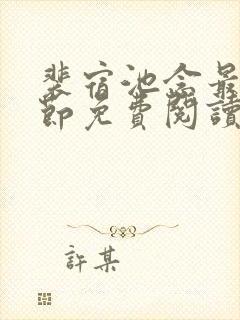 裴宿池念最
節免費閱讀
許某